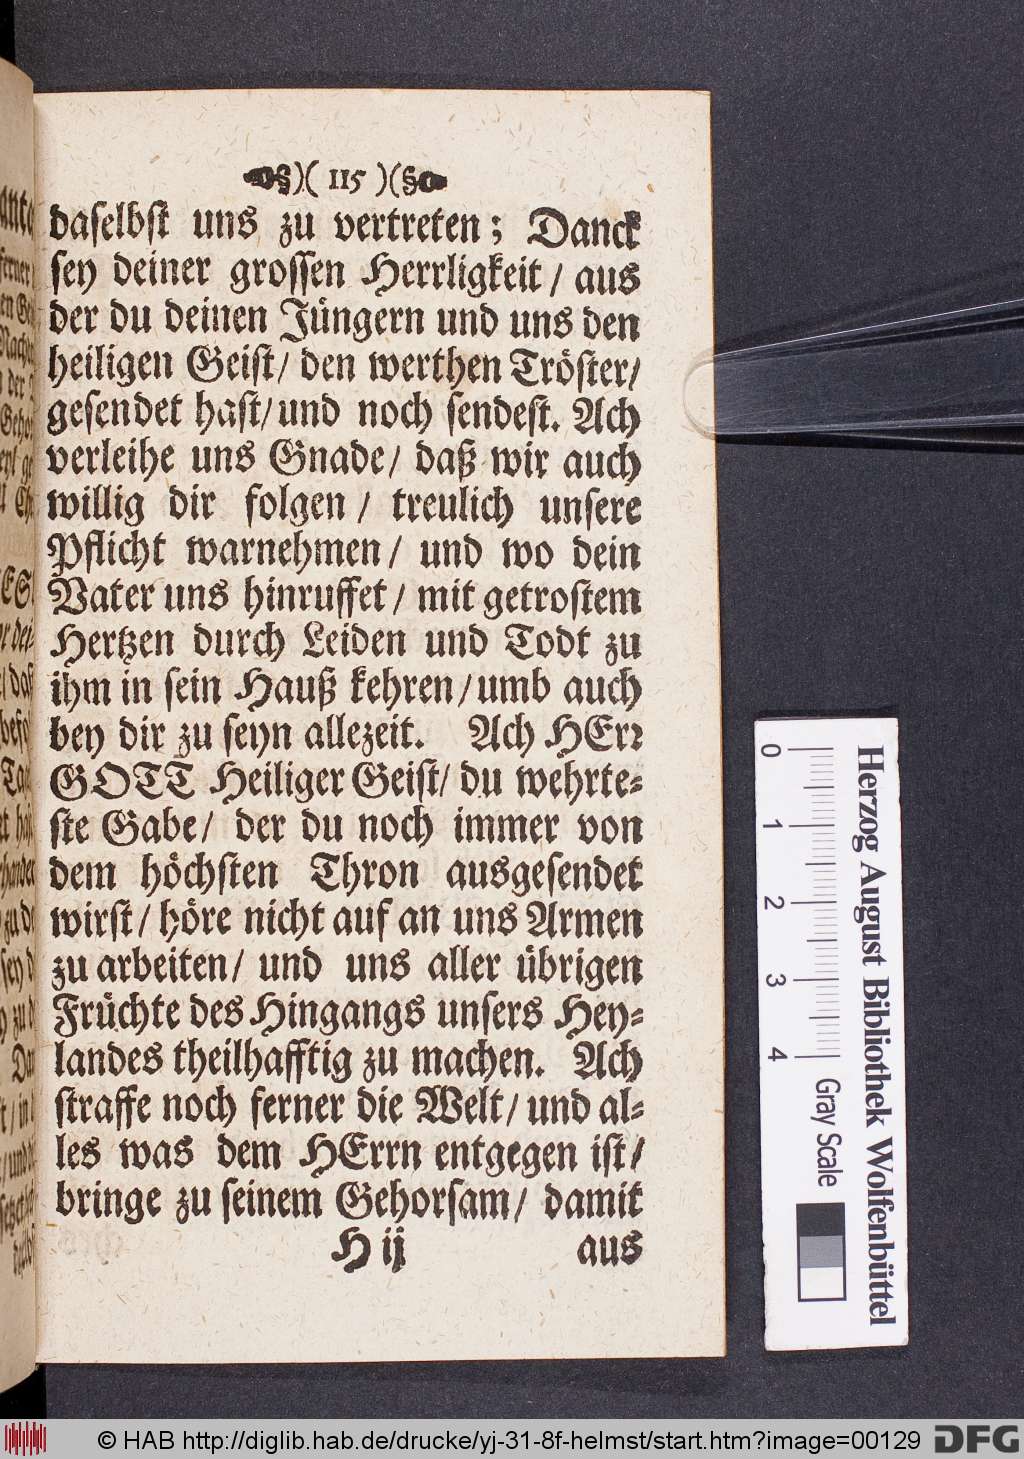 §)( 115 )(§
daselbst uns zu vertreten; Danck
sey deiner grossen Herrligkeit/ aus
der du deinen Jüngern und uns den
heiligen Geist/ den werthen Tröster/
gesendet hast/ und noch sendest. Ach
verleihe uns Gnade/ daß wir auch
willig dir folgen/ treulich unsere
Pflicht warnehmen/ und wo dein
Vater uns hinruffet/ mit getrostem
Hertzen durch Leiden und Todt zu
ihm in sein Hauß kehren/ umb auch
bey dir zu seyn allezeit. Ach HErr
GOTT Heiliger Geist/ du wehrte-
ste Gabe/ der du noch immer von
dem höchsten Thron ausgesendet
wirst/ höre nicht auf an uns Armen
zu arbeiten/ und uns aller übrigen
Früchte des Hingangs unsers Hey-
landes theilhafftig zu machen. Ach
straffe noch ferner die Welt/ und al-
les was dem HErrn entgegen ist/
bringe zu seinem Gehorsam/ damit
H ij aus
Herzog August Bibliothek Wolfenbüttel
0 1 2 3 4 Gray Scale
© HAB http://diglib.hab.de/drucke/yj-31-8f-helmst/start.htm?image=00129
DFG